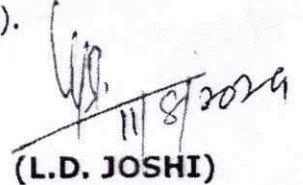 ).
11/8/2024
(L.D. JOSHI)